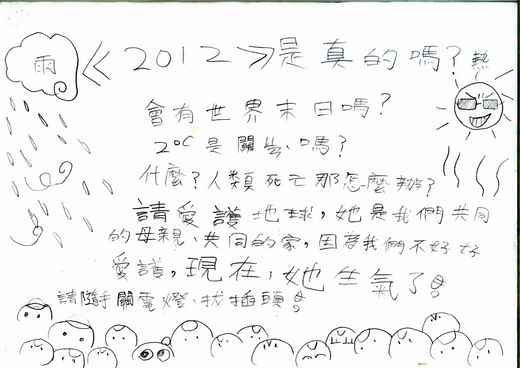 雨
《2012》是真的嗎?
熱
會有世界末日嗎?
2℃是關鍵嗎?
什麼?人類死亡那怎麼辦?
請愛護地球,她是我們共同
的母親、共同的家,因為我們不好好
愛護,現在,她生氣了!
請隨手關電燈、拔插頭!